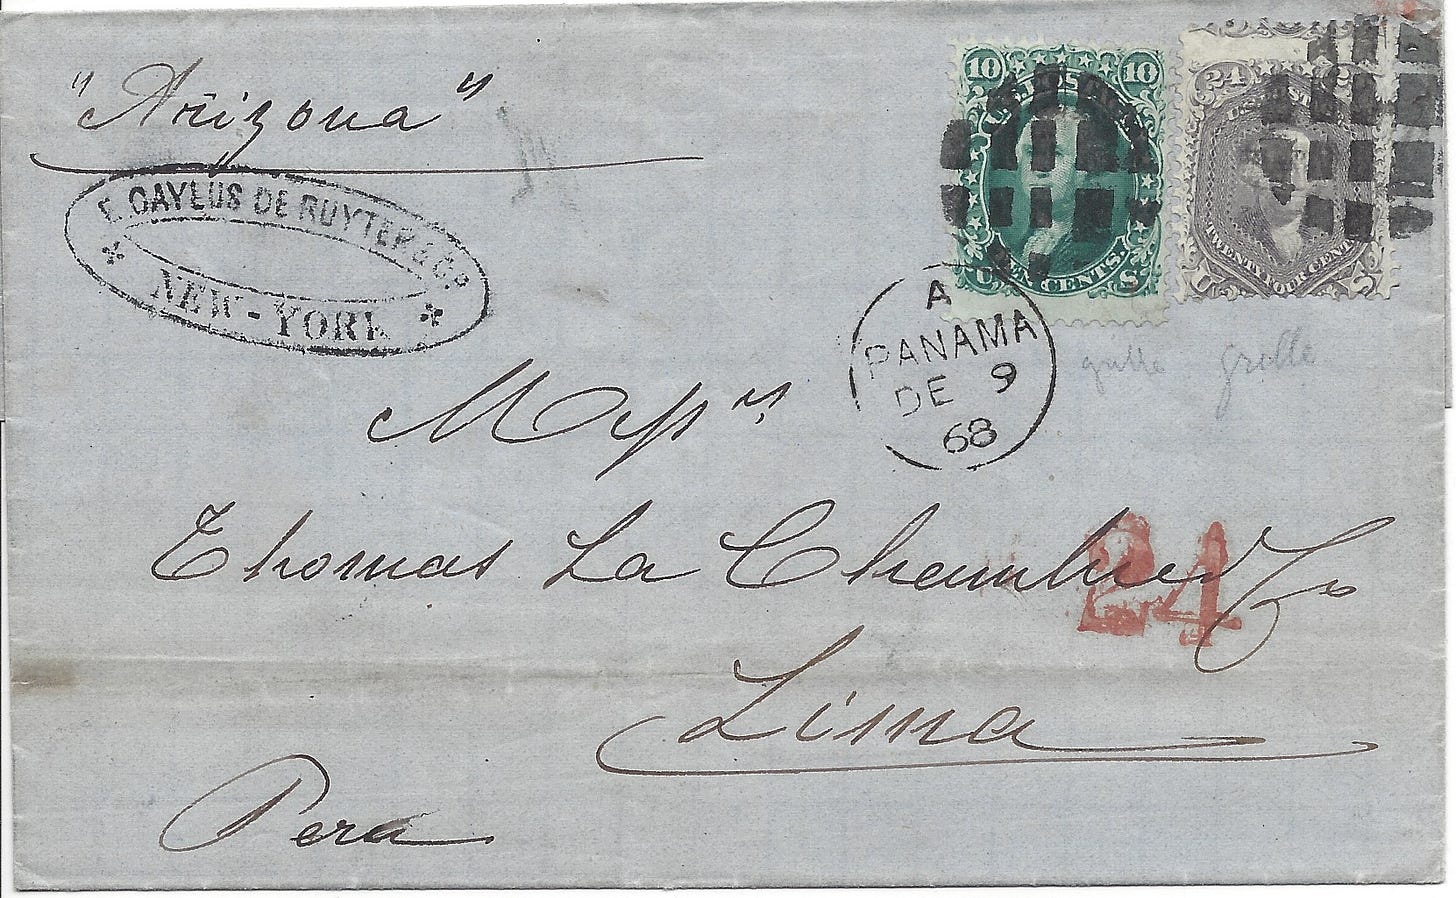 "Arizona"
E. CAYLUS DE RUYTER & Co.
NEW-YORK
10 10
U.S. POSTAGE
TEN CENTS.
U S
24
U.S. POSTAGE
TWENTY FOUR CENTS
U S
A
PANAMA
DE 9
68
grille grille
Messrs
Thomas La Chambre & Co
24
Lima
Peru